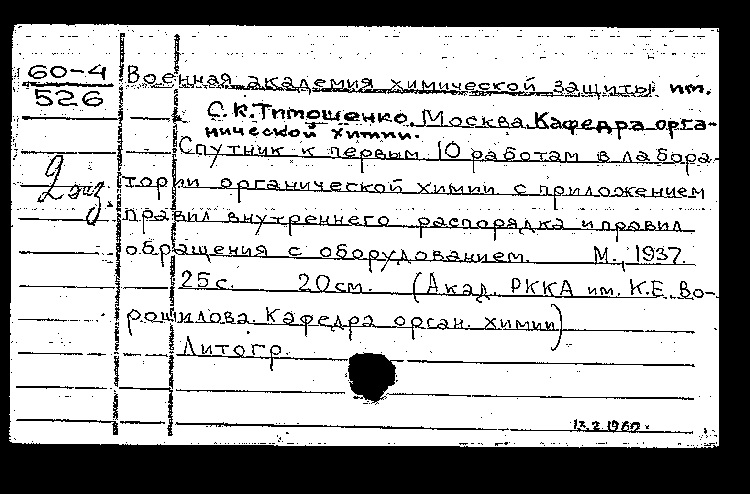 60-4
526
2 экз.
Военная академия химической защиты им.
С.К.Тимошенко, Москва. Кафедра орга-
нической химии.
Спутник к первым 10 работам в лабора-
тории органической химии с приложением
правил внутреннего распорядка и правил
обращения с оборудованием. М., 1937.
25 с. 20 см. (Акад. РККА им. К.Е. Во-
рошилова. Кафедра орган. химии)
Литогр.
13.2.1960.